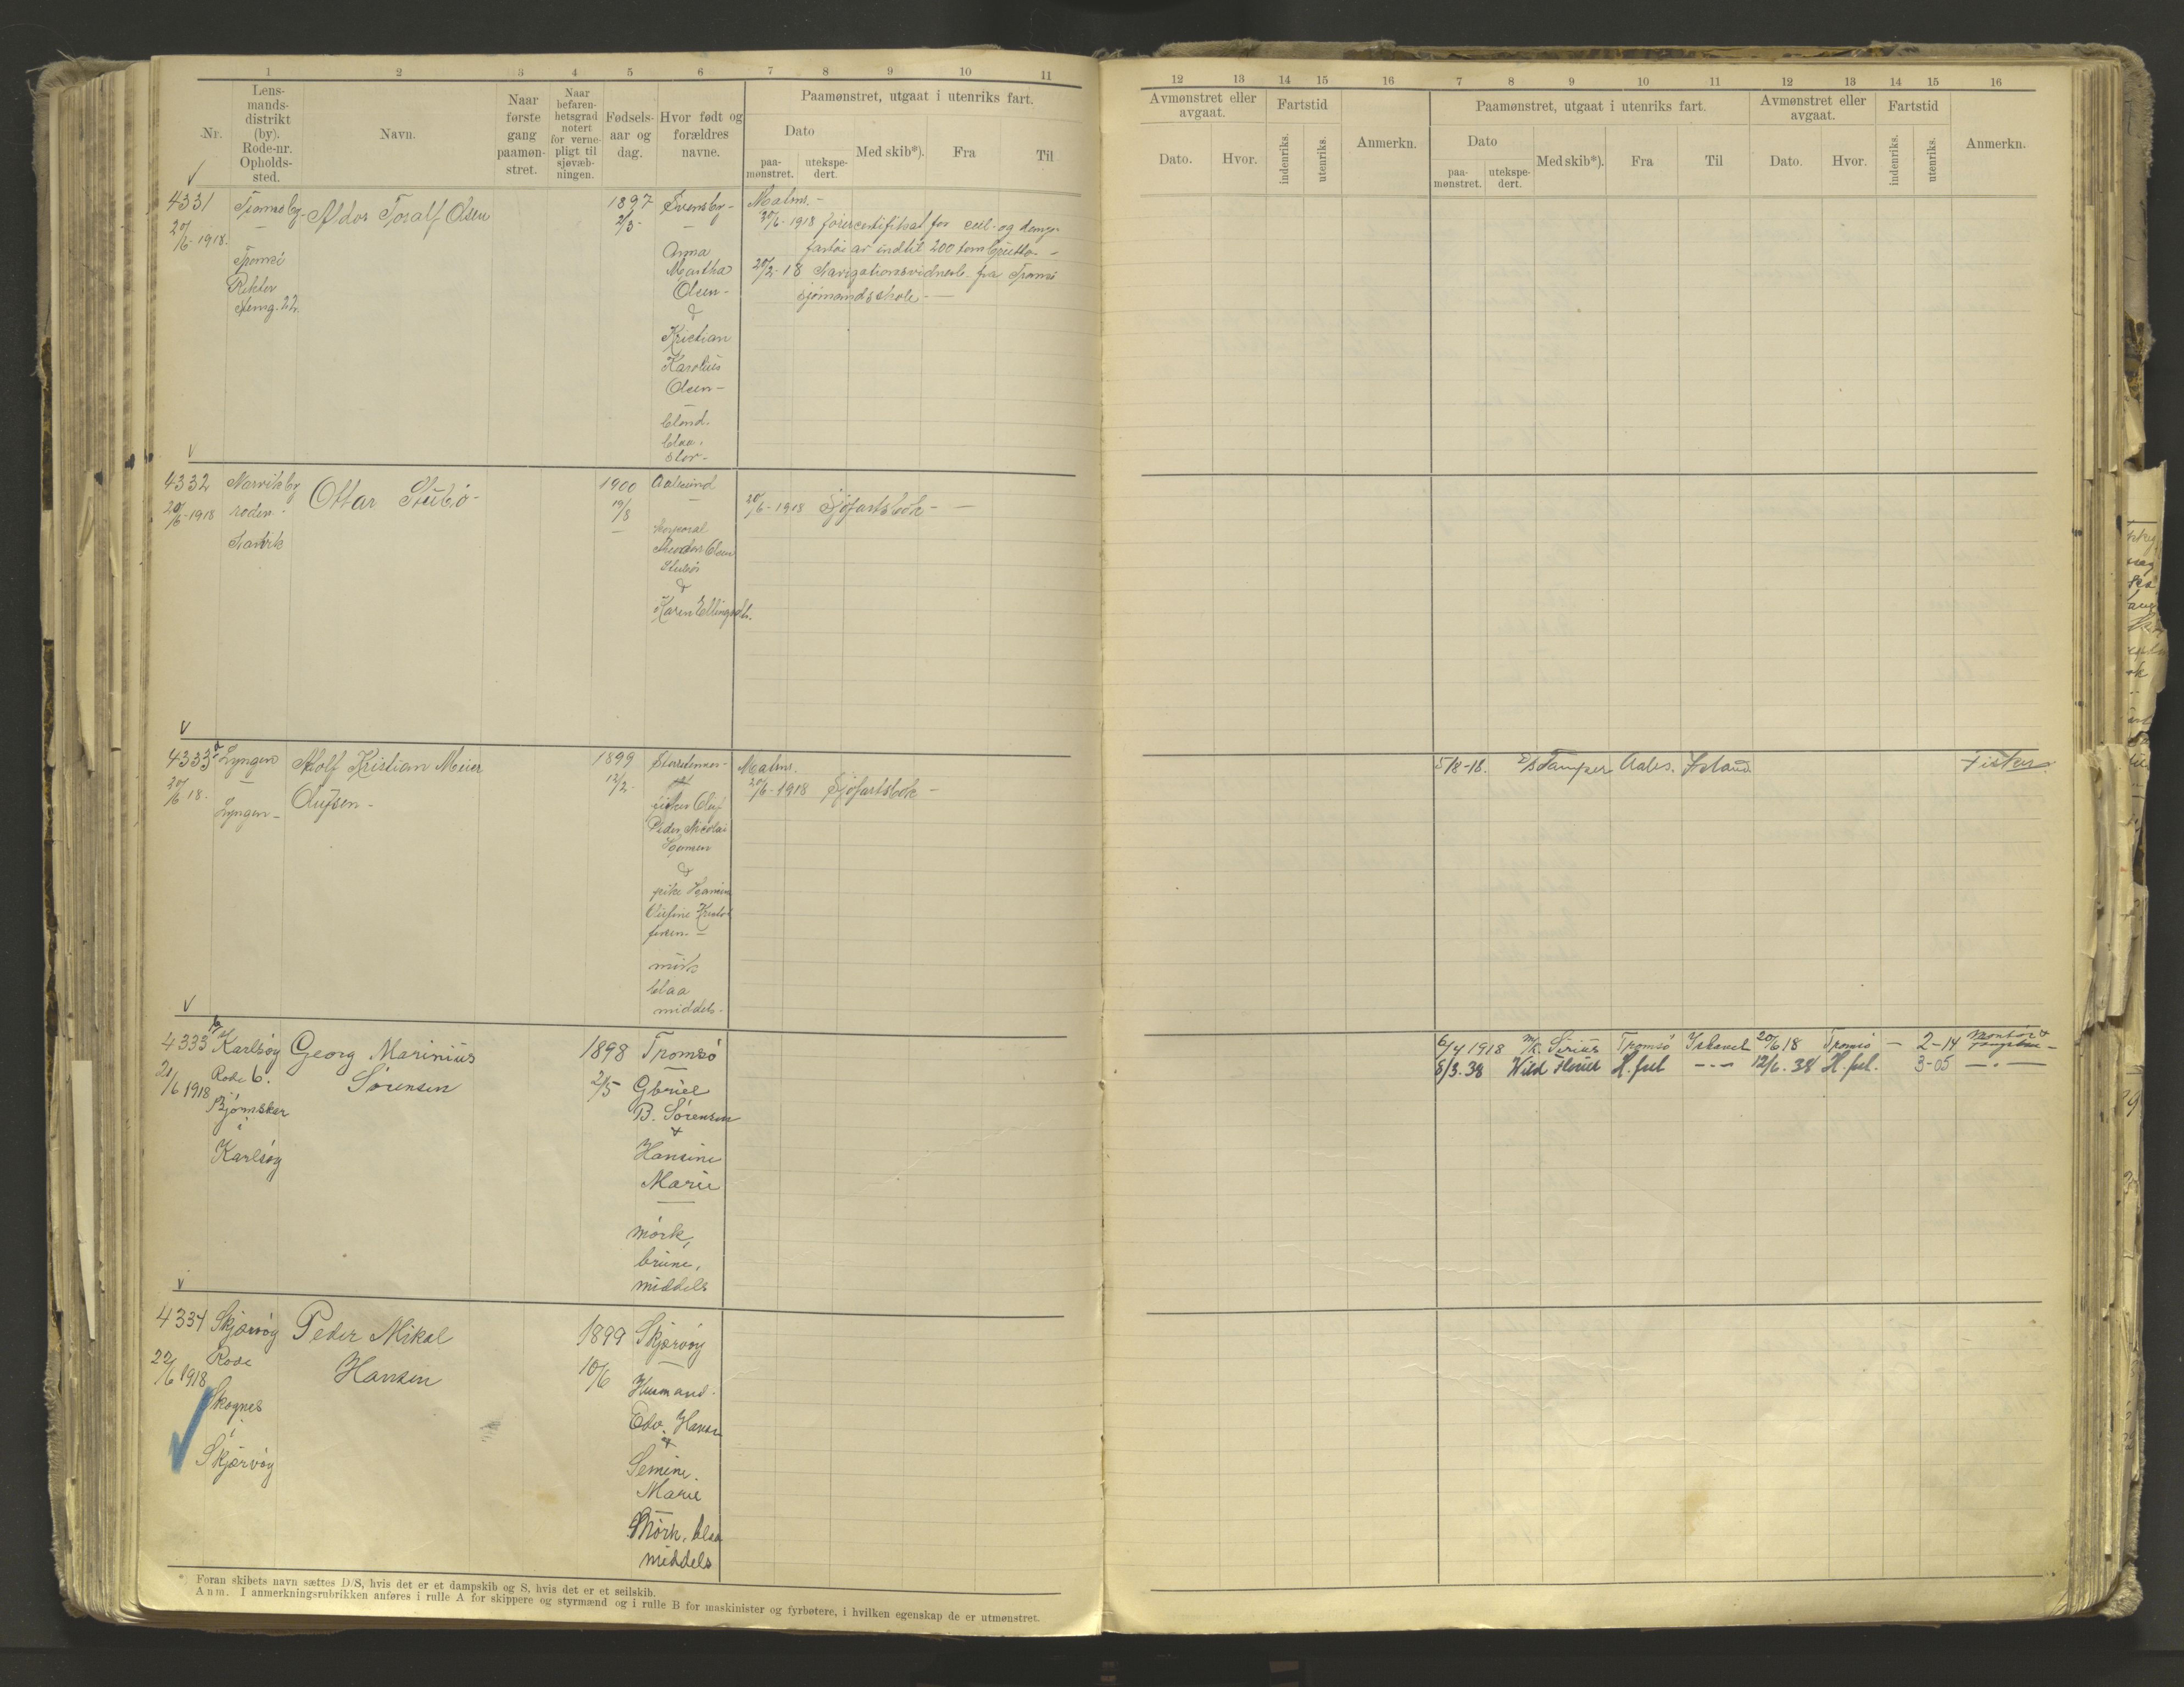 1 2 3 4 5 6 7 8 9 10 11
Nr.
Lens-
mands-
distrikt
(by).
Rode-nr.
Opholds-
sted.
Navn.
Naar
første
gang
paamøn-
stret.
Naar
befaren-
hetsgrad
notert
for verne-
pligt til
sjøvæb-
ningen.
Fødsels-
aar og
dag.
Hvor født og
forældres
navne.
Paamønstret, utgaat i utenriks fart.
Dato
paa-
mønstret.
utekspe-
dert.
Med skib*).
Fra
Til
4331
20/6-1918.
Tromsø by-
Tromsø
Rektor
Stemg. 22.
Aldor Toralf Olsen
1897
2/3-
Svensby-
Anna
Martha
Olsen-
&
Kristian
Karolius
Olsen-
blond.
blaa.
stor-
Matrs.-
20/6-1918 førercertifikat for seil- og damp-
fartøi av indtil 200 tons brutto-
20/2-18 Navigationsvidnesb. fra Tromsø
sjømandsskole-
4332
20/6-1918
Narvik by
roden-
Narvik
Ottar Stubø-
1900
19/8
Aalesund
Korporal
Theodor Olsen
Stubø
&
Karen Ellingsdt.
20/6-1918 Sjøfartsbok-
4333a
20/6 18.
Lyngen
Lyngen-
Adolf Kristian Meier
Olufsen-
1899
12/2-
Storstennes-
fisker Oluf
Peder Nicolai
Hansen
&
pike Hansine
Olufine Kristof
fersen-
mørk
blaa
middels-
Matrs.
20/6-1918 Sjøfartsbok-
4333b
21/6 1918
Karlsøy
Rode 6.
i
Karlsøy
Georg Marinius
Sørensen
1898
2/5
Tromsø
Gbriel
B. Sørensen
+
Hansine
Marie
mørk,
brune,
middels
4334
22/6 1918
Skjærvøy
Rode
Skognes
i
Skjærvøy
Peder Mikal
Hansen
1899
10/6
Skjærvøy
Husmand.
Edv. Hansen
+
Semine.
Marie
Mørk, blaa
middels
*) Foran skibets navn sættes D/S, hvis det er et dampskib og S, hvis det er et seilskib.
Anm. I anmerkningsrubrikken anføres i rulle A for skippere og styrmænd og i rulle B for maskinister og fyrbøtere, i hvilken egenskap de er utmønstret.
12 13 14 15 16 7 8 9 10 11 12 13 14 15 16
Avmønstret eller
avgaat.
Dato.
Hvor.
Fartstid
indenriks.
utenriks.
Anmerkn.
Paamønstret, utgaat i utenriks fart.
Dato
paa-
mønstret.
utekspe-
dert.
Med skib*).
Fra
Til
Avmønstret eller
avgaat.
Dato.
Hvor.
Fartstid
indenriks.
utenriks.
Anmerkn.
5/8-18. Aales. Island. Fisker.
6/4 1918 M/K. Sirius Tromsø Ishavet 20/6 18 Tromsø - 2-14
8/3.38 H.fest -"- 12/6.38 H.fest. 3-05 -"-